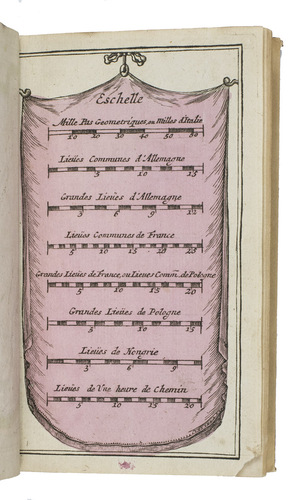 Eschelle
Mille Pas Geometriques, ou Milles d'Italie
10 20 30 40 50 60
Lieües Communes d'Allemagne
5 10 15
Grandes Lieües d'Allemagne
3 6 9 12
Lieües Communes de France
5 10 15 20 25
Grandes Lieües de France, ou Lieües Comm. de Pologne
5 10 15 20
Grandes Lieües de Pologne
5 10 15
Lieües de Hongrie
3 6 9 12
Lieües de Une heure de Chemin
5 10 15 20